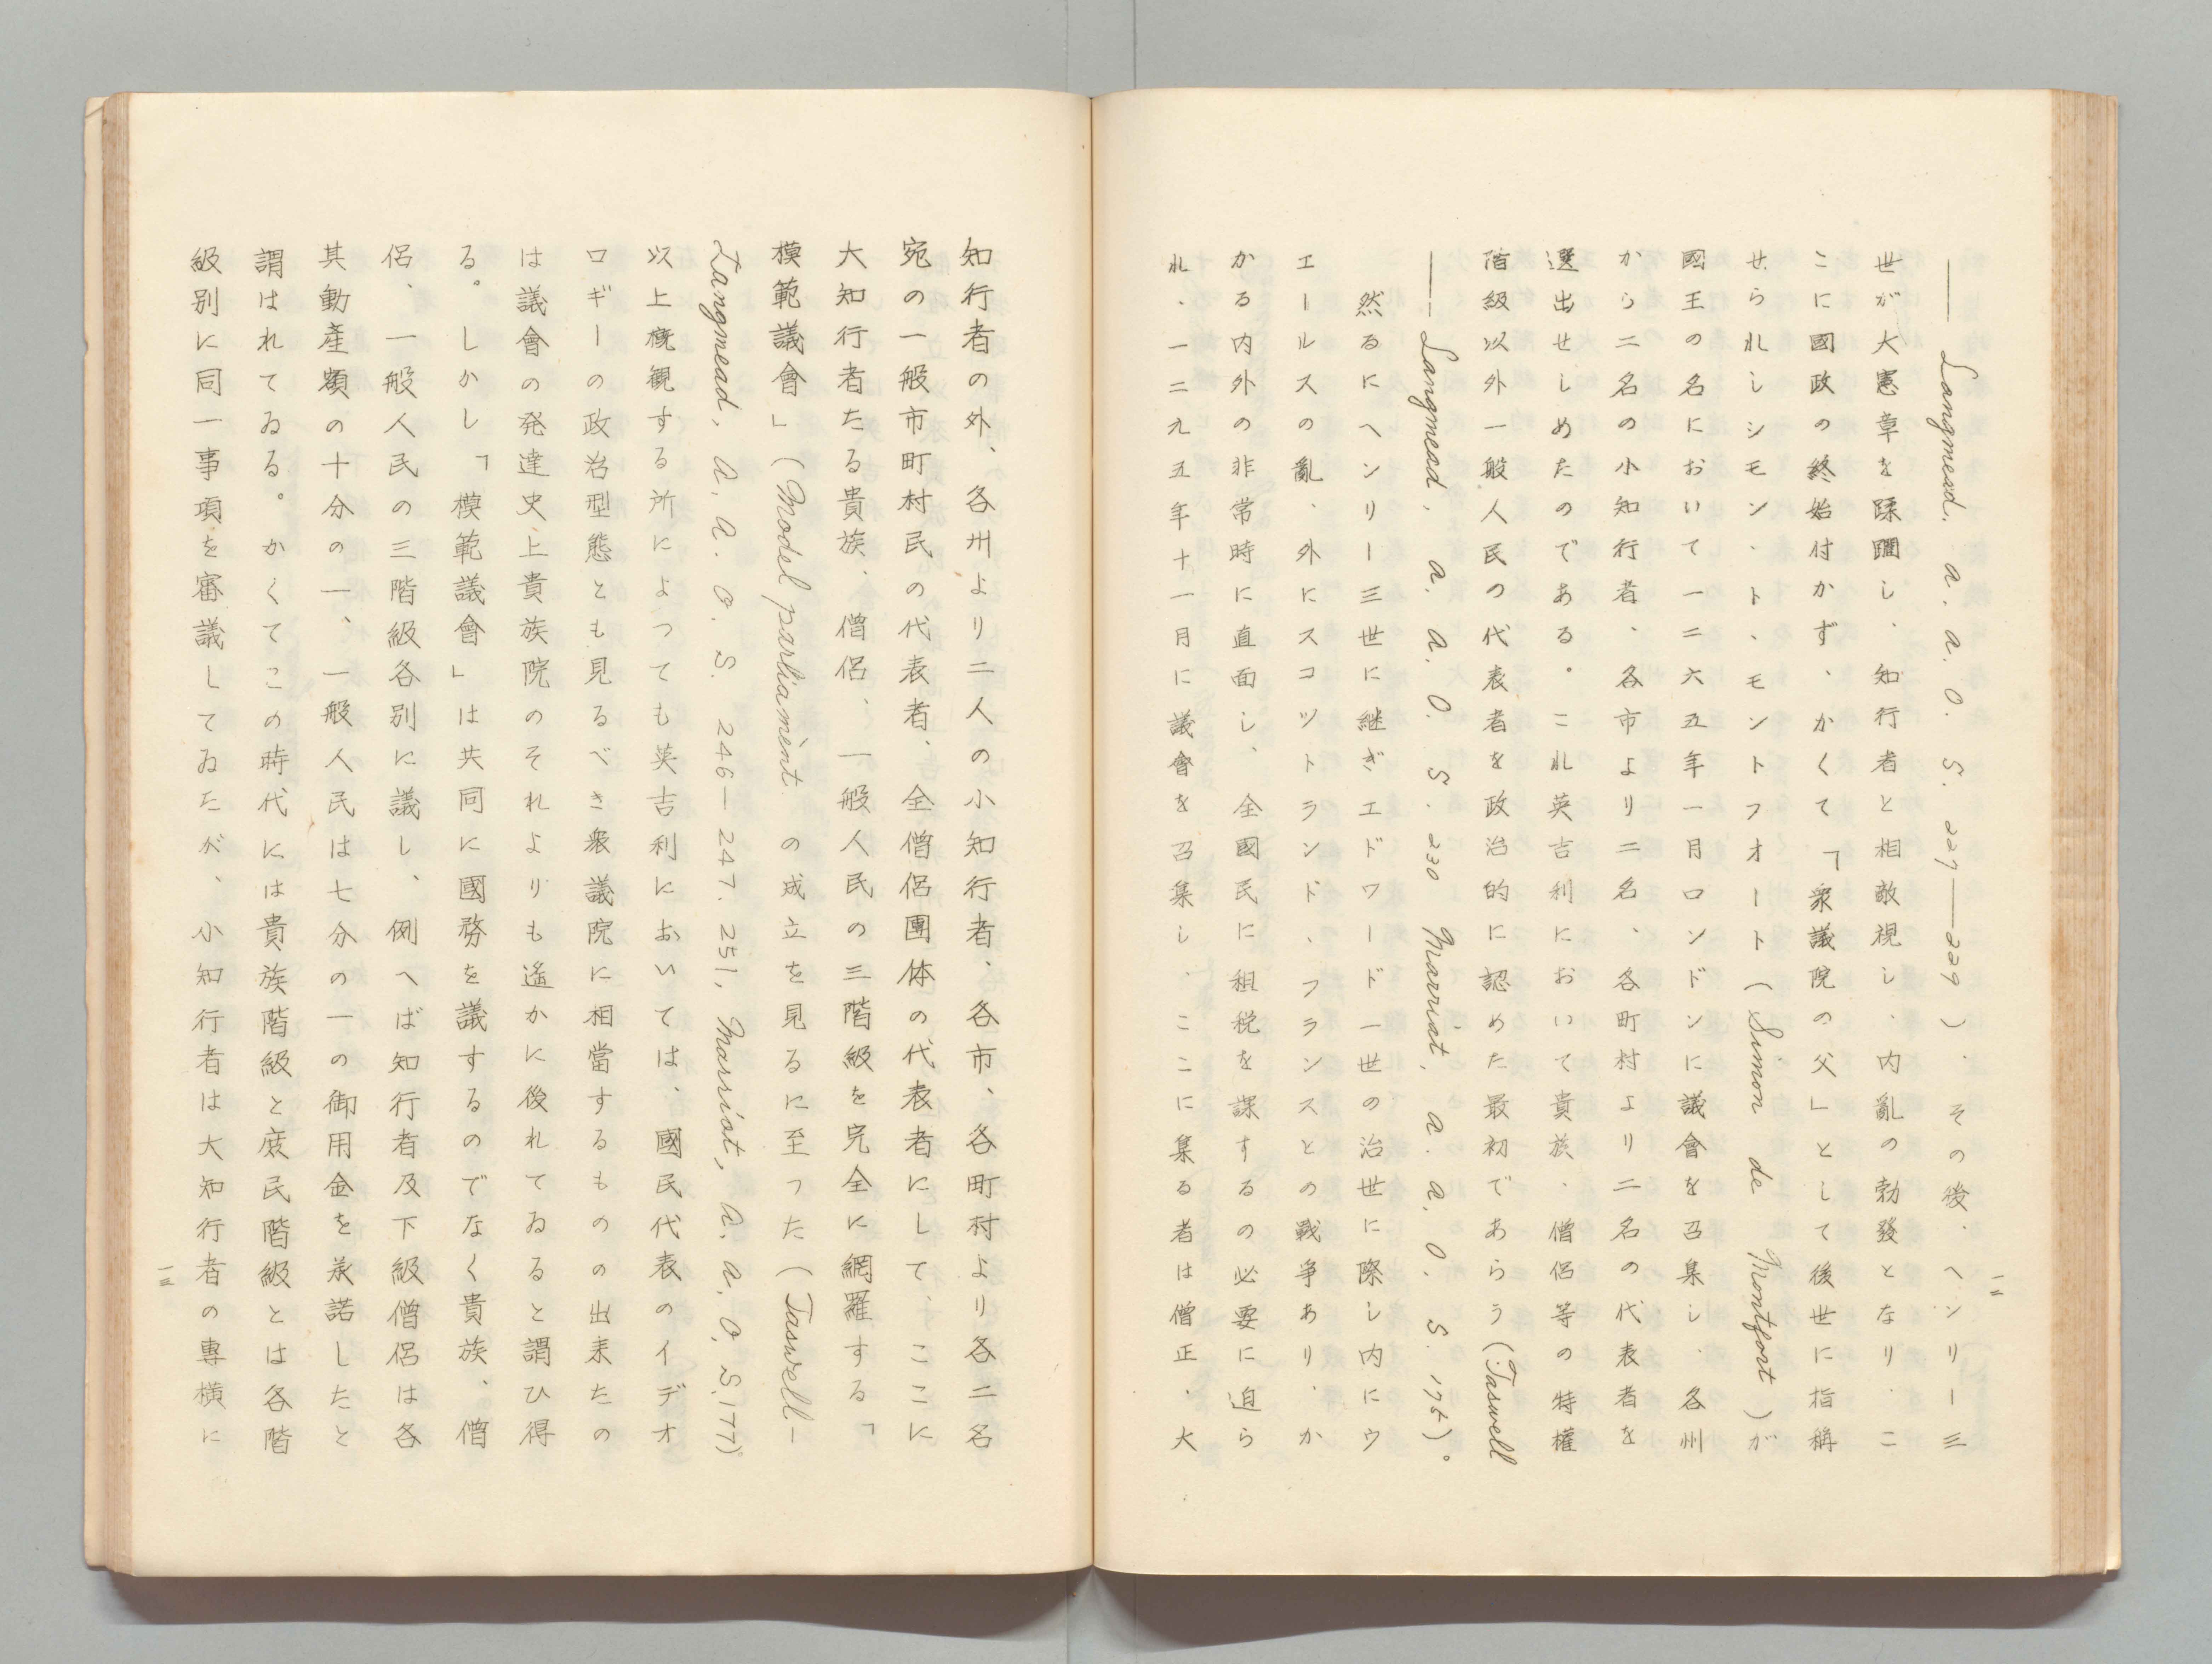 一二
―― Langmead, a. a. O. S. 227――229）、その後、ヘンリー三
世が大憲章を蹂躙し、知行者と相敵視し、内亂の勃發となり、こ
こに國政の終始付かず、かくて「衆議院の父」として後世に指稱
せられしシモン、ト、モントフオート（Simon de Montfort）が
國王の名において一二六五年一月ロンドンに議會を召集し、各州
から二名の小知行者、各市より二名、各町村より二名の代表者を
選出せしめたのである。これ英吉利において貴族、僧侶等の特權
階級以外一般人民の代表者を政治的に認めた最初であらう（Taswell
―― Langmead, a. a. O. S. 230 Marriat, a. a. O. S. 175）。
然るにヘンリー三世に継ぎエドワード一世の治世に際し内にウ
エールスの亂、外にスコツトランド、フランスとの戰争あり、か
かる内外の非常時に直面し、全國民に租税を課するの必要に迫ら
れ、一二九五年十一月に議會を召集し、ここに集る者は僧正、大
知行者の外、各州より二人の小知行者、各市、各町村より各二名
宛の一般市町村民の代表者、全僧侶團体の代表者にして、ここに
大知行者たる貴族、僧侶、一般人民の三階級を完全に網羅する「
模範議會」（Model parliament の成立を見るに至つた（Taswell―
Langmead, a. a. O. S. 246―247. 251, Marriot, a. a. O. S. 177）
以上概観する所によつても英吉利においては、國民代表のイデオ
ロギーの政治型態とも見るべき衆議院に相當するものの出来たの
は議會の発達史上貴族院のそれよりも遙かに後れてゐると謂ひ得
る。しかし「模範議會」は共同に國務を議するのでなく貴族、僧
侶、一般人民の三階級各別に議し、例へば知行者及下級僧侶は各
其動産額の十分の一、一般人民は七分の一の御用金を承諾したと
謂はれてゐる。かくてこの時代には貴族階級と庶民階級とは各階
級別に同一事項を審議してゐたが、小知行者は大知行者の專横に
一三